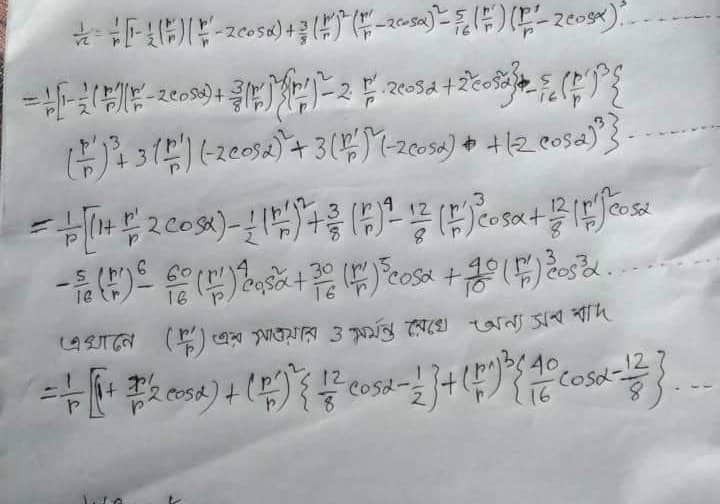 1/r₂ = 1/r [1 - 1/2 (r'/r) (r'/r - 2cosα) + 3/8 (r'/r)² (r'/r - 2cosα)² - 5/16 (r'/r) (r'/r - 2cosα)³.......
= 1/r [1 - 1/2 (r'/r) (r'/r - 2cosα) + 3/8 (r'/r)² {(r'/r)² - 2. r'/r . 2cosα + 2²cos²α} - 5/16 (r'/r)³ {
(r'/r)³ + 3 (r'/r) (-2cosα)² + 3 (r'/r)² (-2cosα) + (-2 cosα)³}.......
= 1/r [(1 + r'/r 2cosα) - 1/2 (r'/r)² + 3/8 (r'/r)⁴ - 12/8 (r'/r)³ cosα + 12/8 (r'/r)² cosα
- 5/16 (r'/r)⁶ - 60/16 (r'/r)⁴ cos²α + 30/16 (r'/r)⁵ cosα + 40/10 (r'/r)³ cos³α.......
এখানে (r'/r) এর পাওয়ার 3 পর্যন্ত রেখে অন্য সব বাদ
= 1/r [(1 + r'/r 2cosα) + (r'/r)² {12/8 cosα - 1/2} + (r'/r)³ {40/16 cosα - 12/8}...